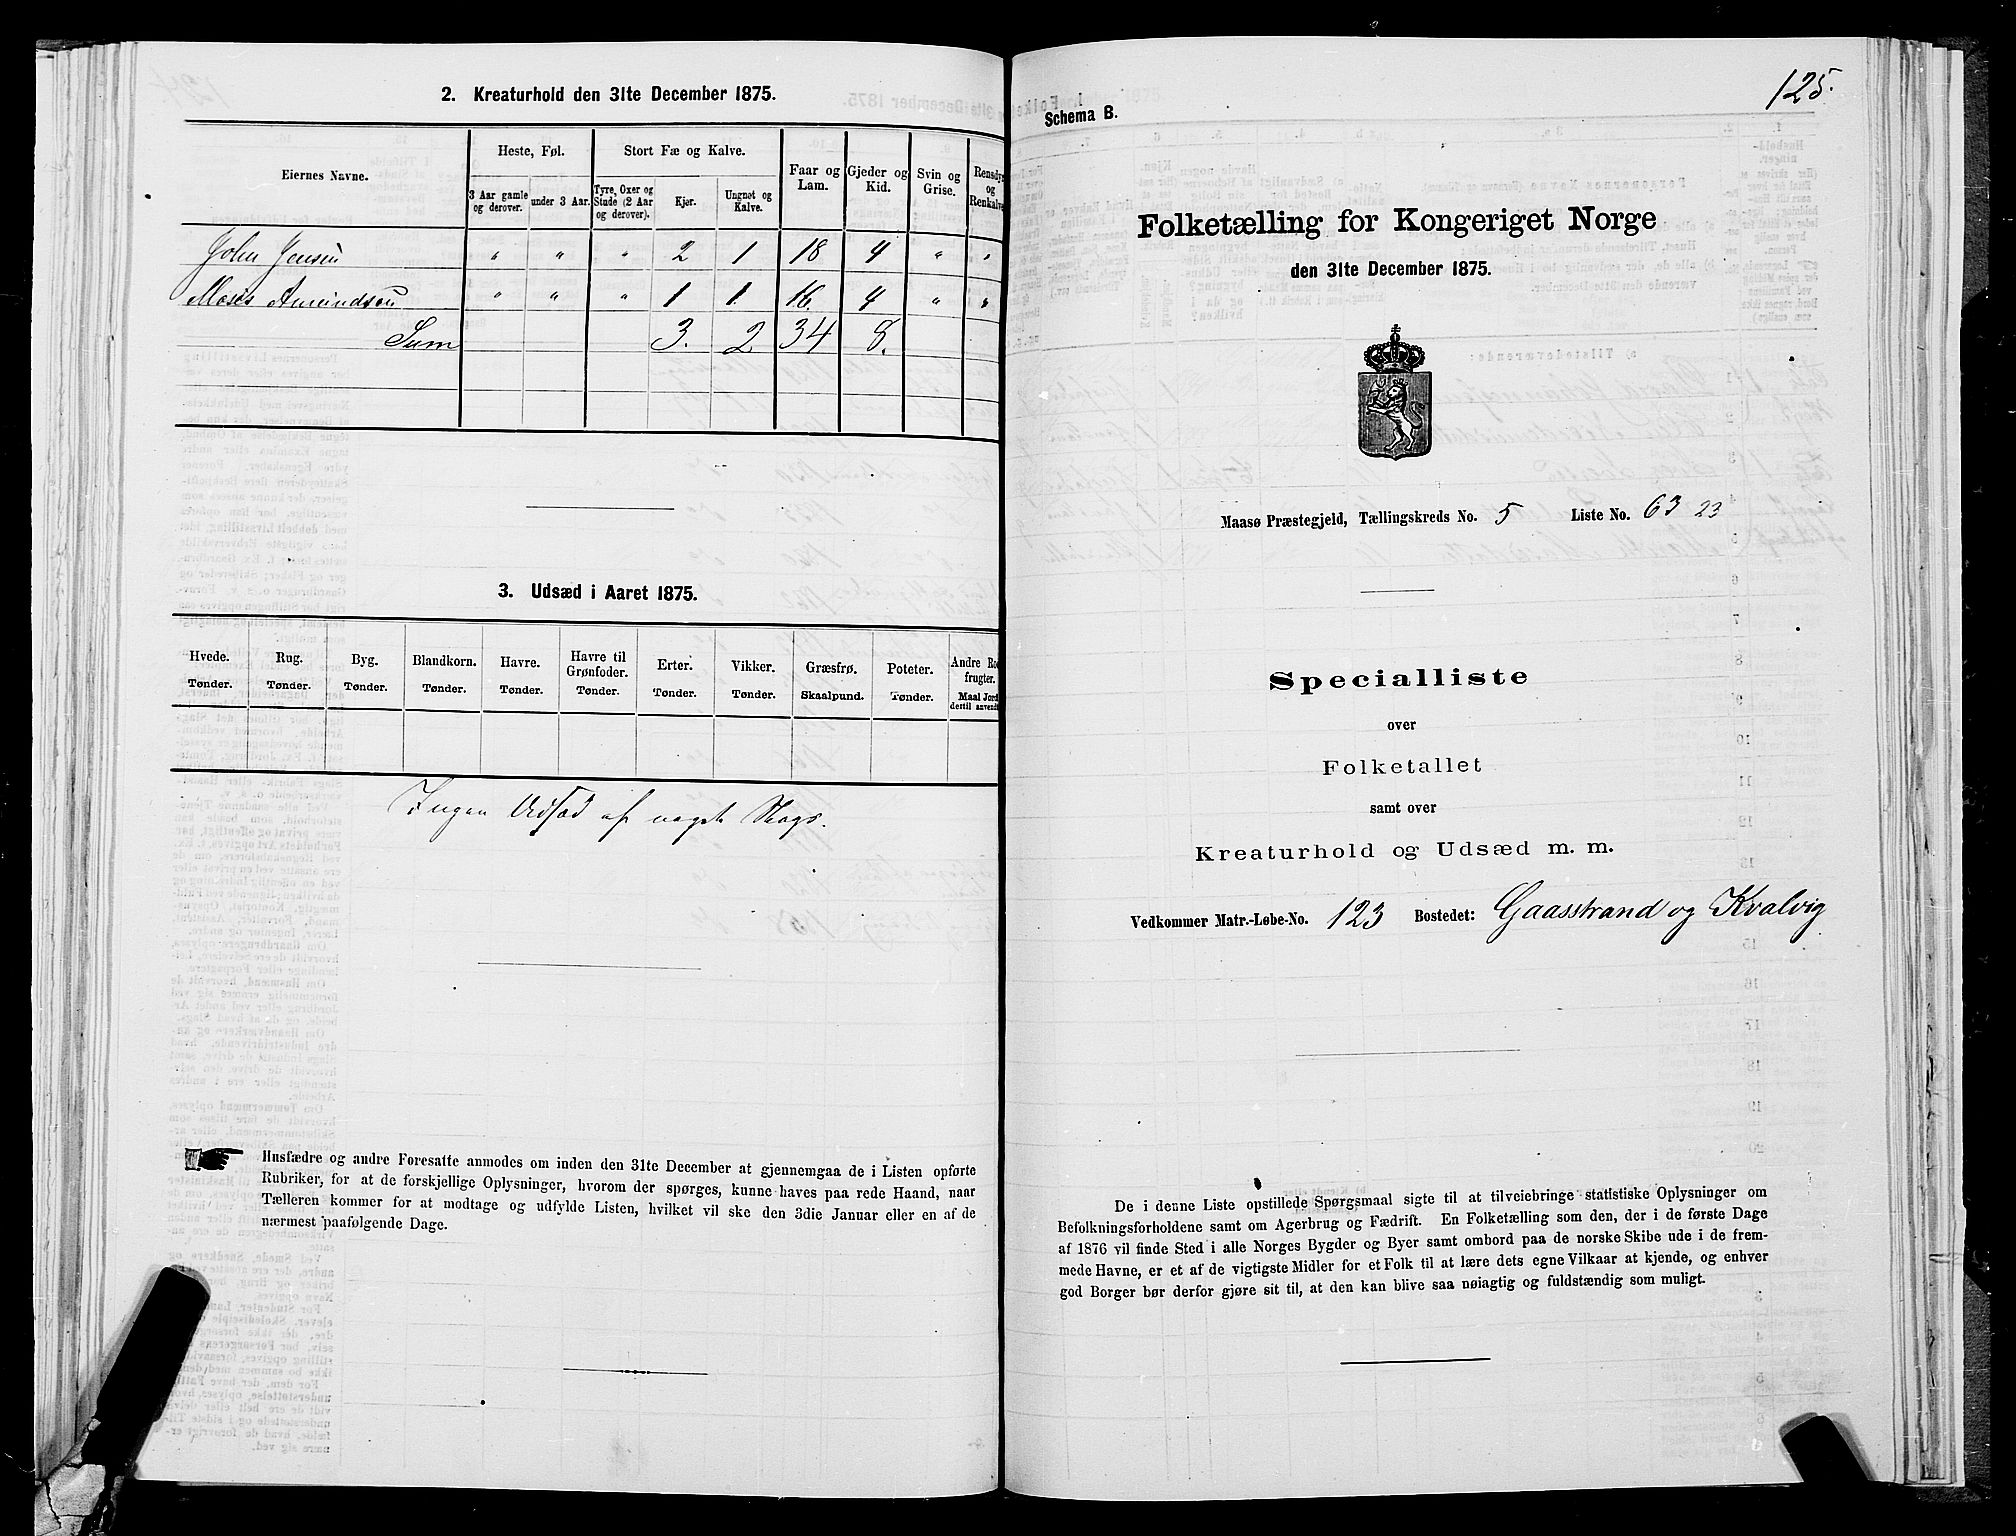 2. Kreaturhold den 31te December 1875.
Eiernes Navne.
Heste, Føl.
Stort Fæ og Kalve.
Faar og Lam.
Gjeder og Kid.
Svin og Grise.
Rensdyr og Renkalve
3 Aar gamle og derover.
under 3 Aar.
Tyre, Oxer og Stude (2 Aar og derover).
Kjør.
Ungnøt og Kalve.
John Jensen " " " 2 1 18 4 " "
Moses Amundsen " " " 1 1. 16. 4 " "
Sum 3. 2 34 8.
3. Udsæd i Aaret 1875.
Hvede. Rug. Byg. Blandkorn. Havre. Havre til Grønfoder. Erter. Vikker. Græsfrø. Poteter. Andre Ro frugter.
Tønder. Tønder. Tønder. Tønder. Tønder. Tønder. Tønder. Tønder. Skaalpund. Tønder. Maal Jord dertil anvendt
Ingen Udsæd af noget Slags.
Husfædre og andre Foresatte anmodes om inden den 31te December at gjennemgaa de i Listen opførte
Rubriker, for at de forskjellige Oplysninger, hvorom der spørges, kunne haves paa rede Haand, naar
Tælleren kommer for at modtage og udfylde Listen, hvilket vil ske den 3die Januar eller en af de
nærmest paafølgende Dage.
125.
Schema B.
Folketælling for Kongeriget Norge
den 31te December 1875.
Maasø Præstegjeld, Tællingskreds No. 5 Liste No. 63 23
Specialliste
over
Folketallet
samt over
Kreaturhold og Udsæd m. m.
Vedkommer Matr.-Løbe-No. 123 Bostedet: Gaasstrand og Kvalvig
De i denne Liste opstillede Spørgsmaal sigte til at tilveiebringe statistiske Oplysninger om
Befolkningsforholdene samt om Agerbrug og Fædrift. En Folketælling som den, der i de første Dage
af 1876 vil finde Sted i alle Norges Bygder og Byer samt ombord paa de norske Skibe ude i de frem-
mede Havne, er et af de vigtigste Midler for et Folk til at lære dets egne Vilkaar at kjende, og enhver
god Borger bør derfor gjøre sit til, at den kan blive saa nøiagtig og fuldstændig som muligt.